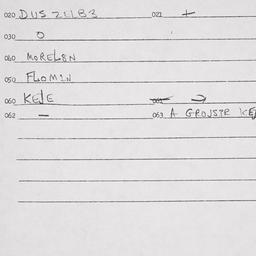 020 DUS 21183 021 +
030 O
060 MORELEN
050 FLOMIN
060 KEJE
062 — 063 A GROJSTR KEJ